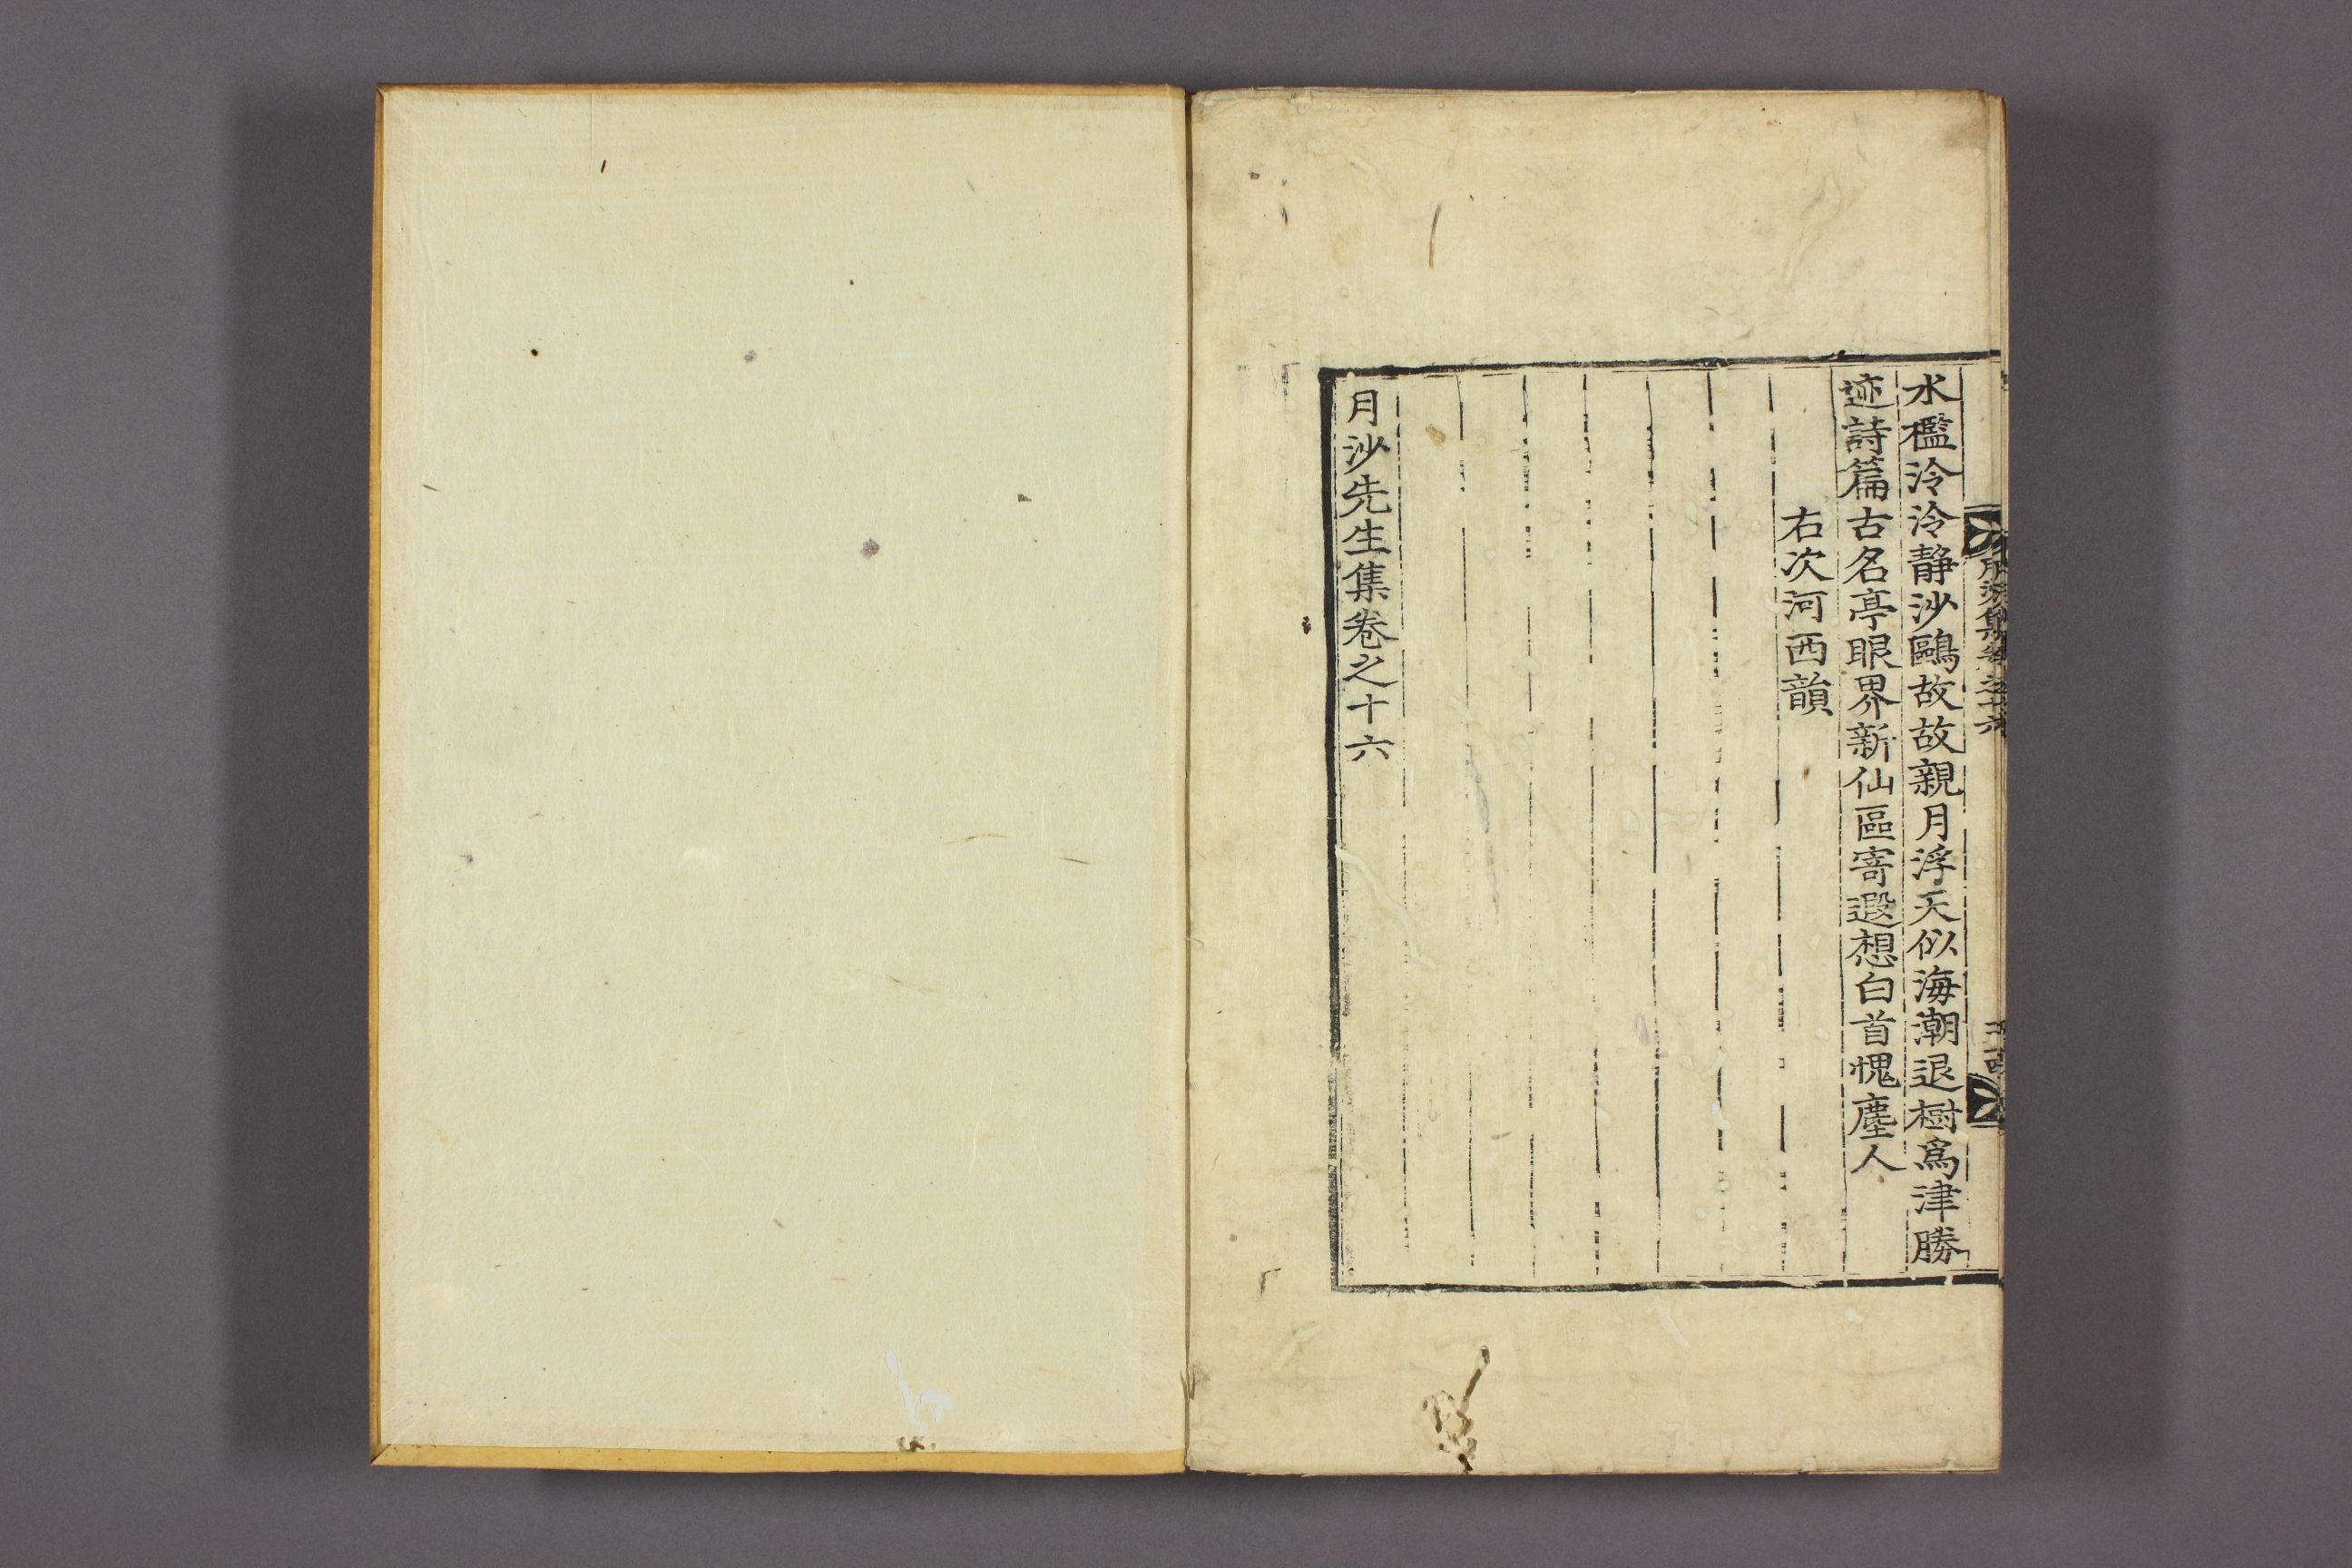 水檻泠泠靜沙鷗故故親月浮天似海潮退樹爲津勝
迹詩篇古名亭眼界新仙區寄遐想白首愧塵人
右次河西韻
月沙先生集卷之十六